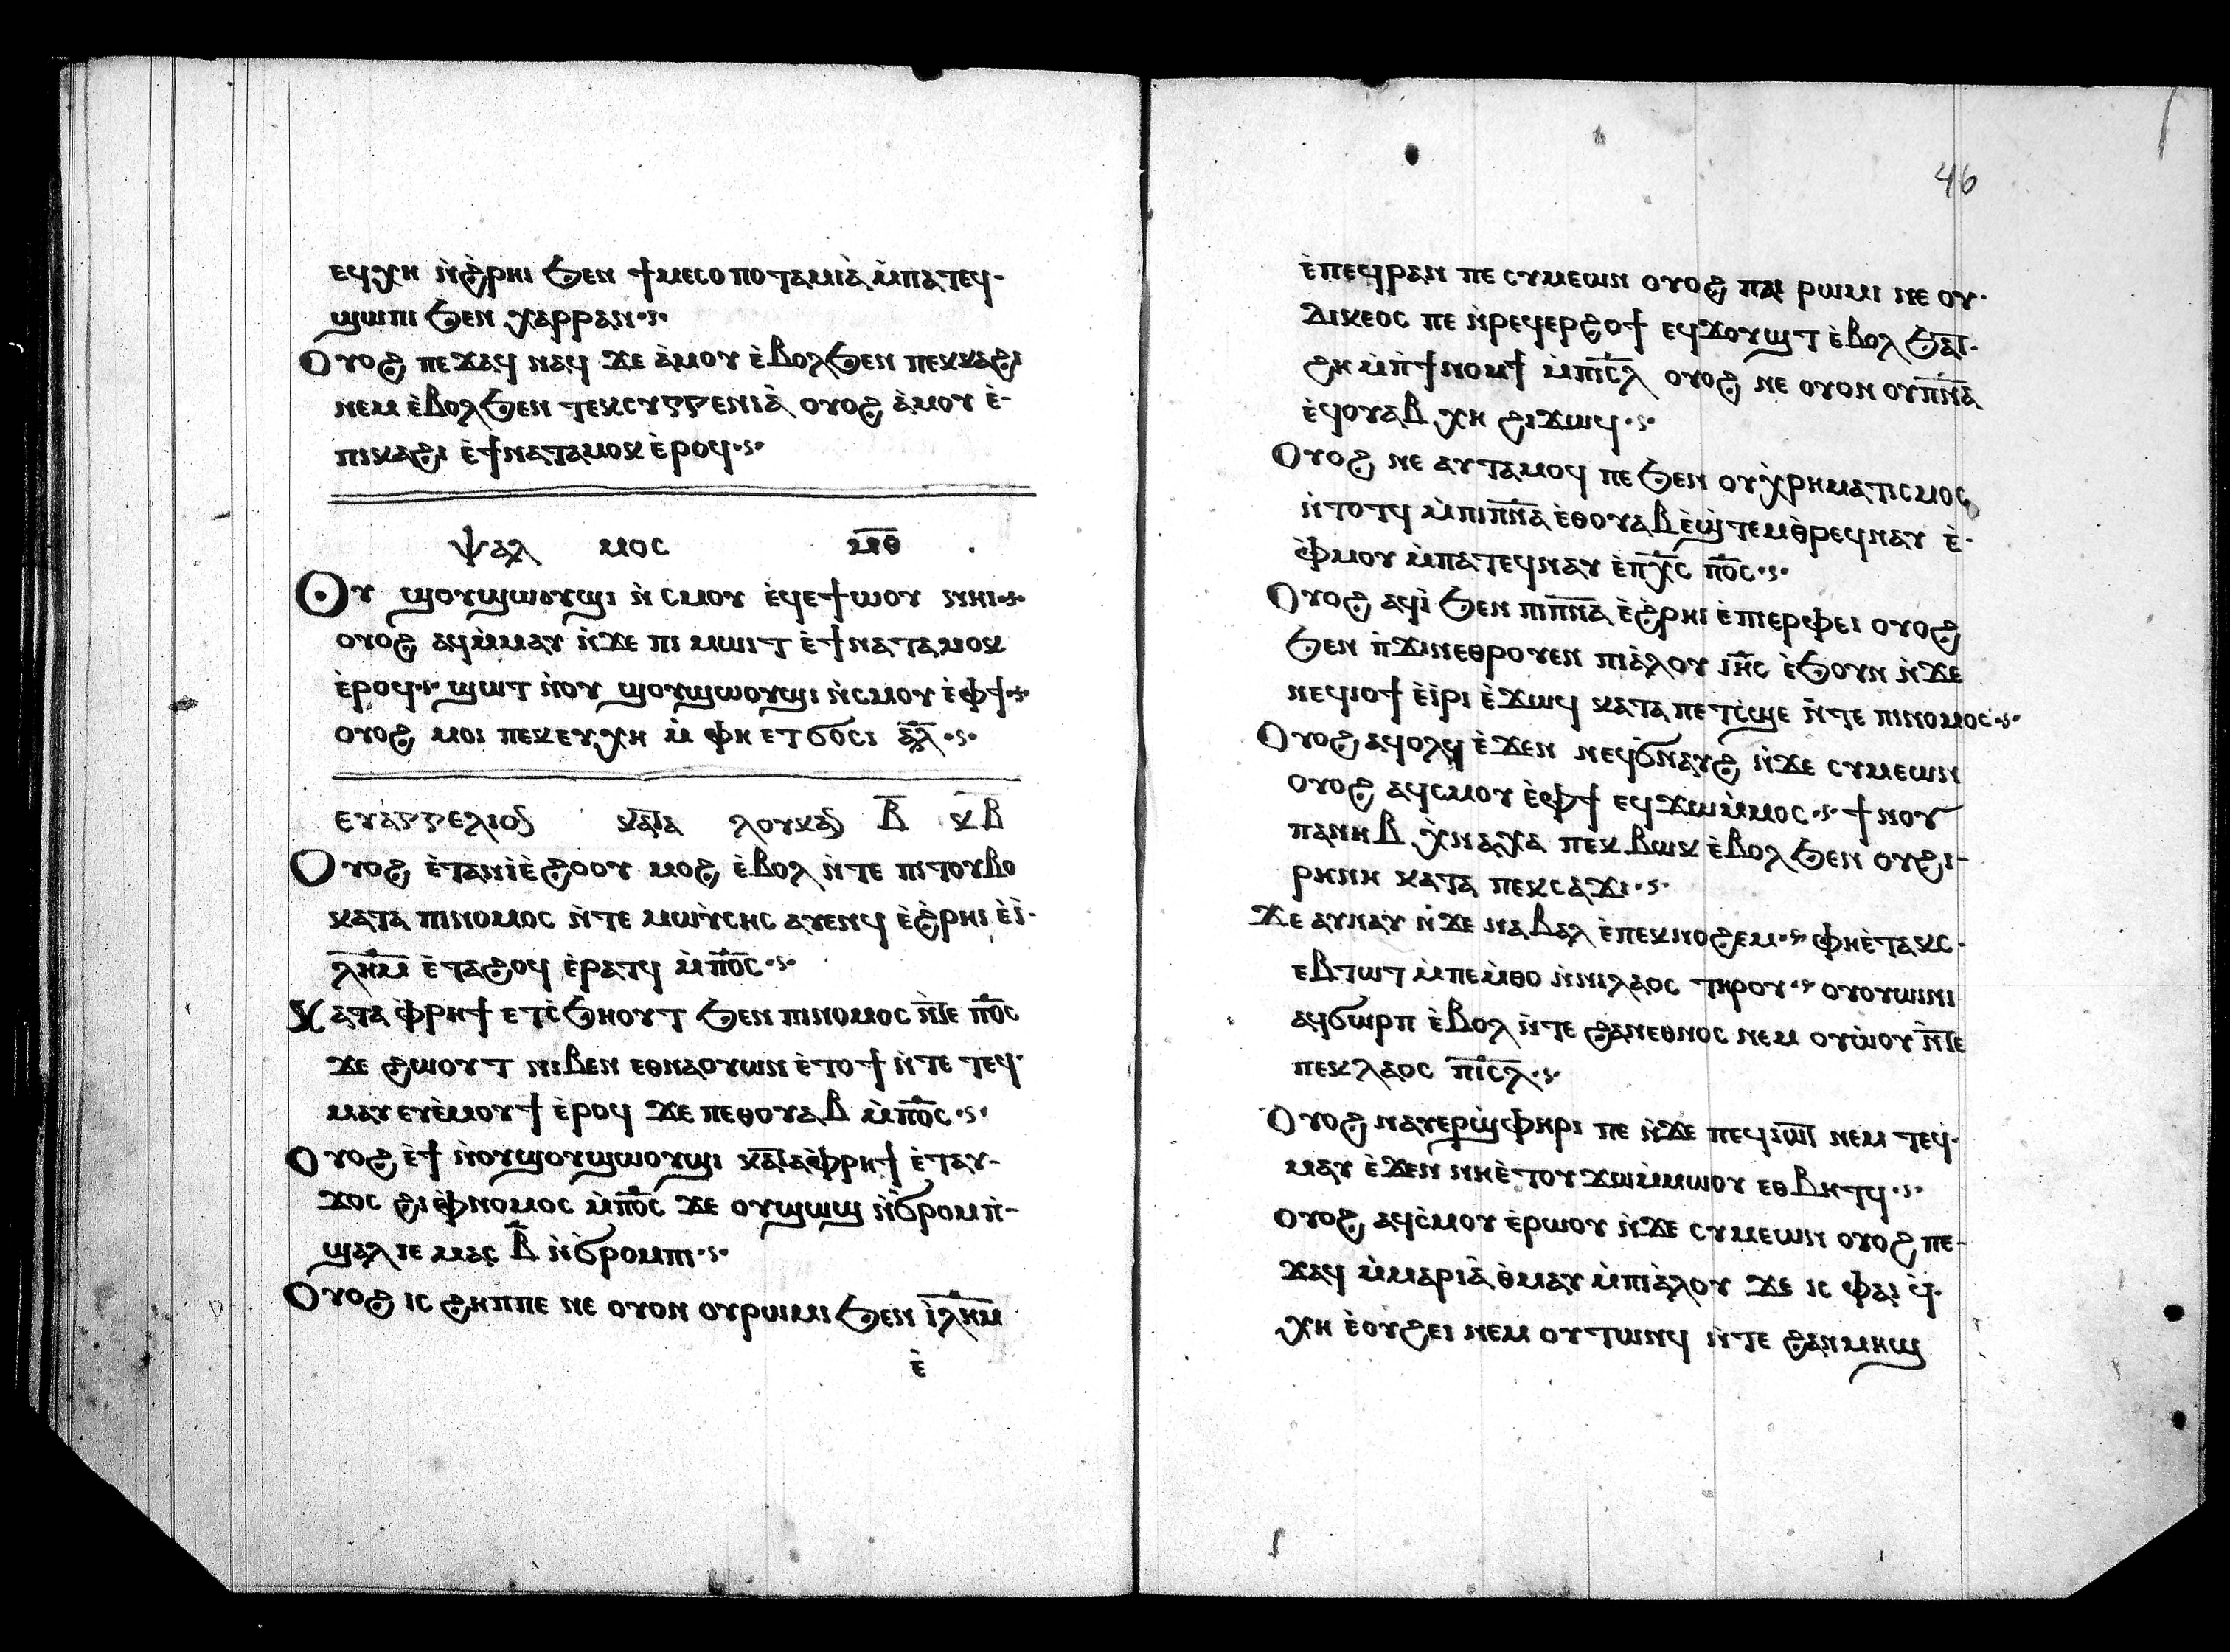 ⲉϥⲭⲏ ⲛ̀ϩ̀ⲣⲏⲓ ϧⲉⲛ ϯⲙⲉⲥⲟⲡⲟⲧⲁⲙⲓⲁ̀ ⲙ̀ⲡⲁⲧⲉϥ-
ϣⲱⲡⲓ ϧⲉⲛ ⲭⲁⲣⲣⲁⲛ·ⲋ·
Ⲟⲩⲟϩ ⲡⲉϫⲁϥ ⲛⲁϥ ϫⲉ ⲁ̀ⲙⲟⲩ ⲉ̀ⲃⲟⲗϧⲉⲛ ⲡⲉⲕⲕⲁϩⲓ
ⲛⲉⲙ ⲉ̀ⲃⲟⲗϧⲉⲛ ⲧⲉⲕⲥⲩⲅⲅⲉⲛⲓⲁ̀ ⲟⲩⲟϩ ⲁ̀ⲙⲟⲩ ⲉ̀-
ⲡⲓⲕⲁϩⲓ ⲉ̀ϯⲛⲁⲧⲁⲙⲟⲕ ⲉ̀ⲣⲟϥ·ⲋ·
ⲯⲁⲗ ⲙⲟⲥ ⲙ̅ⲑ̅
Ⲟⲩ ϣⲟⲩϣⲱⲟⲩϣⲓ ⲛ̀ ⲥⲙⲟⲩ ⲉ̀ϥⲉϯⲱⲟⲩ ⲛⲏⲓ·ⲋ·
ⲟⲩⲟϩ ⲁϥⲙ̀ⲙⲁⲩ ⲛ̀ϫⲉ ⲡⲓ ⲙⲱⲓⲧ ⲉ̀ϯⲛⲁⲧⲁⲙⲟⲕ
ⲉ̀ⲣⲟϥ·ⲋ· ϣⲱⲧ ⲛ̀ⲟⲩ ϣⲟⲩϣⲱⲟⲩϣⲓ ⲛ̀ⲥⲙⲟⲩ ⲉ̀ⲫϯ·ⲋ·
ⲟⲩⲟϩ ⲙⲟⲓ ⲡⲉⲕⲉⲩⲭⲏ ⲙ̀ ⲫⲏ ⲉⲧϭⲟⲥⲓ ⲁ̅ⲗ̅·ⲋ·
ⲉⲩⲁⲅⲅⲉⲗⲓⲟⲛ ⲕⲁⲧⲁ ⲗⲟⲩⲕⲁⲛ ⲃ̅ ⲕ̅ⲃ̅
Ⲟⲩⲟϩ ⲉ̀ⲧⲁⲛⲓⲉ̀ϩⲟⲟⲩ ⲙⲟϩ ⲉ̀ⲃⲟⲗ ⲛ̀ⲧⲉ ⲡⲓⲧⲟⲩⲃⲟ
ⲕⲁⲧⲁ ⲡⲓⲛⲟⲙⲟⲥ ⲛ̀ⲧⲉ ⲙⲱⲩ̀ⲥⲏⲥ ⲁⲩⲉⲛϥ ⲉ̀ϩ̀ⲣⲏⲓ ⲉ̀ⲓ̀-
ⲗ̅ⲏ̅ⲙ̅ ⲉ̀ⲧⲁϩⲟϥ ⲉ̀ⲣⲁⲧϥ ⲙ̀ⲡ̅ⲟ̅ⲥ̅·ⲋ·
Ⲕⲁⲧⲁ ⲫ̀ⲣⲏϯ ⲉⲧⲥ̀ϧⲏⲟⲩⲧ ϧⲉⲛ ⲡⲓⲛⲟⲙⲟⲥ ⲛ̀ⲧⲉ ⲡ̅ⲟ̅ⲥ̅
ϫⲉ ϩⲱⲟⲩⲧ ⲛⲓⲃⲉⲛ ⲉⲑⲛⲁⲟⲩⲱⲛ ⲉ̀ⲧⲟϯ ⲛ̀ⲧⲉ ⲧⲉϥ-
ⲙⲁⲩ ⲉⲩⲉ̀ⲙⲟⲩϯ ⲉ̀ⲣⲟϥ ϫⲉ ⲡⲉⲑⲟⲩⲁⲃ ⲙ̀ⲡ̅ⲟ̅ⲥ̅·ⲋ·
Ⲟⲩⲟϩ ⲉ̀ϯ ⲛ̀ⲟⲩϣⲟⲩϣⲱⲟⲩϣⲓ ⲕⲁⲧⲁⲫ̀ⲣⲏϯ ⲉ̀ⲧⲁⲩ-
ϫⲟⲥ ϩⲓⲫ̀ⲛⲟⲙⲟⲥ ⲙ̀ⲡ̅ⲟ̅ⲥ̅ ϫⲉ ⲟⲩϣⲱϣ ⲛ̀ϭⲣⲟⲙⲡ̀-
ϣⲁⲗ ⲓⲉ ⲙⲁⲥ ⲃ̅ ⲛ̀ϭⲣⲟⲙⲡⲓ·ⲋ·
Ⲟⲩⲟϩ ⲓⲥ ϩⲏⲡⲡⲉ ⲛⲉ ⲟⲩⲟⲛ ⲟⲩⲣⲱⲙⲓ ϧⲉⲛ ⲓ̅ⲗ̅ⲏ̅ⲙ̅
ⲉ̀
46
ⲉ̀ⲡⲉϥⲣⲁⲛ ⲡⲉ ⲥⲩⲙⲉⲱⲛ ⲟⲩⲟϩ ⲡⲁⲓ ⲣⲱⲙⲓ ⲛⲉ ⲟⲩ-
ⲇⲓⲕⲉⲟⲥ ⲡⲉ ⲛ̀ⲣⲉϥⲉⲣϩⲟϯ ⲉϥϫⲟⲩϣⲧ ⲉ̀ⲃⲟⲗ ϧⲁⲧ-
ϩⲏ ⲙ̀ⲡ̀ϯⲛⲟⲙϯ ⲙ̀ⲡⲓ̅ⲥ̅ⲗ̅ ⲟⲩⲟϩ ⲛⲉ ⲟⲩⲟⲛ ⲟⲩⲡ̅ⲛ̅ⲁ̅
ⲉϥⲟⲩⲁⲃ ⲭⲏ ϩⲓϫⲱϥ·ⲋ·
Ⲟⲩⲟϩ ⲛⲉ ⲁⲩⲧⲁⲙⲟϥ ⲡⲉ ϧⲉⲛ ⲟⲩⲭ̀ⲣⲏⲙⲁⲧⲓⲥⲙⲟⲥ
ⲛ̀ⲧⲟⲧϥ ⲙ̀ⲡⲓⲡ̅ⲛ̅ⲁ̅ ⲉ̀ⲑⲟⲩⲁⲃ ⲉ̀ϣ̀ⲧⲉⲙⲑ̀ⲣⲉϥⲛⲁⲩ ⲉ̀-
ⲫ̀ⲙⲟⲩ ⲙ̀ⲡⲁⲧⲉϥⲛⲁⲩ ⲉ̀ⲡⲭ̅ⲥ̅ ⲡ̅ⲟ̅ⲥ̅·ⲋ·
Ⲟⲩⲟϩ ⲁϥⲓ̀ ϧⲉⲛ ⲡⲓⲡ̅ⲛ̅ⲁ̅ ⲉ̀ϩ̀ⲣⲏⲓ ⲉ̀ⲡⲓⲉⲣⲫⲉⲓ ⲟⲩⲟϩ
ϧⲉⲛ ⲡ̀ϫⲓⲛⲉⲑⲣⲟⲩⲉⲛ ⲡⲓⲁ̀ⲗⲟⲩ ⲓ̅ⲏ̅ⲥ̅ ⲉ̀ϧⲟⲩⲛ ⲛ̀ϫⲉ
ⲛⲉϥⲓⲟϯ ⲉ̀ⲓ̀ⲣⲓ ⲉ̀ϫⲱϥ ⲕⲁⲧⲁ ⲡⲉⲧⲥ̀ϣⲉ ⲛ̀ⲧⲉ ⲡⲓⲛⲟⲙⲟⲥ·ⲋ·
Ⲟⲩⲟϩ ⲁϥⲟⲗϥ ⲉ̀ϫⲉⲛ ⲛⲉϥϭⲛⲁⲩϩ ⲛ̀ϫⲉ ⲥⲩⲙⲉⲱⲛ
ⲟⲩⲟϩ ⲁϥⲥⲙⲟⲩ ⲉ̀ⲫϯ ⲉϥϫⲱⲙ̀ⲙⲟⲥ·ⲋ· ϯⲛⲟⲩ
ⲡⲁⲛⲏⲃ ⲭ̀ⲛⲁⲭⲁ ⲡⲉⲕⲃⲱⲕ ⲉ̀ⲃⲟⲗ ϧⲉⲛ ⲟⲩϩⲓ-
ⲣⲏⲛⲏ ⲕⲁⲧⲁ ⲡⲉⲕⲥⲁϫⲓ·ⲋ·
Ϫⲉ ⲁⲩⲛⲁⲩ ⲛ̀ϫⲉ ⲛⲁⲃⲁⲗ ⲉ̀ⲡⲉⲕⲛⲟϩⲉⲙ·ⲋ· ⲫⲏⲉ̀ⲧⲁⲕⲥ-
ⲉⲃⲧⲱⲧ ⲙ̀ⲡⲉⲙ̀ⲑⲟ ⲛ̀ⲛⲓⲗⲁⲟⲥ ⲧⲏⲣⲟⲩ·ⲋ· ⲟⲩⲟⲩⲱⲓⲛⲓ
ⲁϥϭⲱⲣⲡ ⲉ̀ⲃⲟⲗ ⲛ̀ⲧⲉ ϩⲁⲛⲉⲑⲛⲟⲥ ⲛⲉⲙ ⲟⲩⲱ̀ⲟⲩ ⲛ̀ⲧⲉ
ⲡⲉⲕⲗⲁⲟⲥ ⲡⲓ̅ⲥ̅ⲗ̅·ⲋ·
Ⲟⲩⲟϩ ⲛⲁⲩⲉⲣϣ̀ⲫⲏⲣⲓ ⲡⲉ ⲛ̀ϫⲉ ⲡⲉϥⲓⲱⲧ ⲛⲉⲙ ⲧⲉϥ-
ⲙⲁⲩ ⲉ̀ϫⲉⲛ ⲛⲏⲉ̀ⲧⲟⲩϫⲱⲙ̀ⲙⲱⲟⲩ ⲉⲑⲃⲏⲧϥ·ⲋ·
Ⲟⲩⲟϩ ⲁϥⲥ̀ⲙⲟⲩ ⲉ̀ⲣⲱⲟⲩ ⲛ̀ϫⲉ ⲥⲩⲙⲉⲱⲛ ⲟⲩⲟϩ ⲡⲉ-
ϫⲁϥ ⲙ̀ⲙⲁⲣⲓⲁ̀ ⲑ̀ⲙⲁⲩ ⲙ̀ⲡⲓⲁ̀ⲗⲟⲩ ϫⲉ ⲓⲥ ⲫⲁⲓ ϥ̀-
ⲭⲏ ⲉ̀ⲟⲩϩⲉⲓ ⲛⲉⲙ ⲟⲩⲧⲱⲛϥ ⲛ̀ⲧⲉ ϩⲁⲛⲙⲏϣ